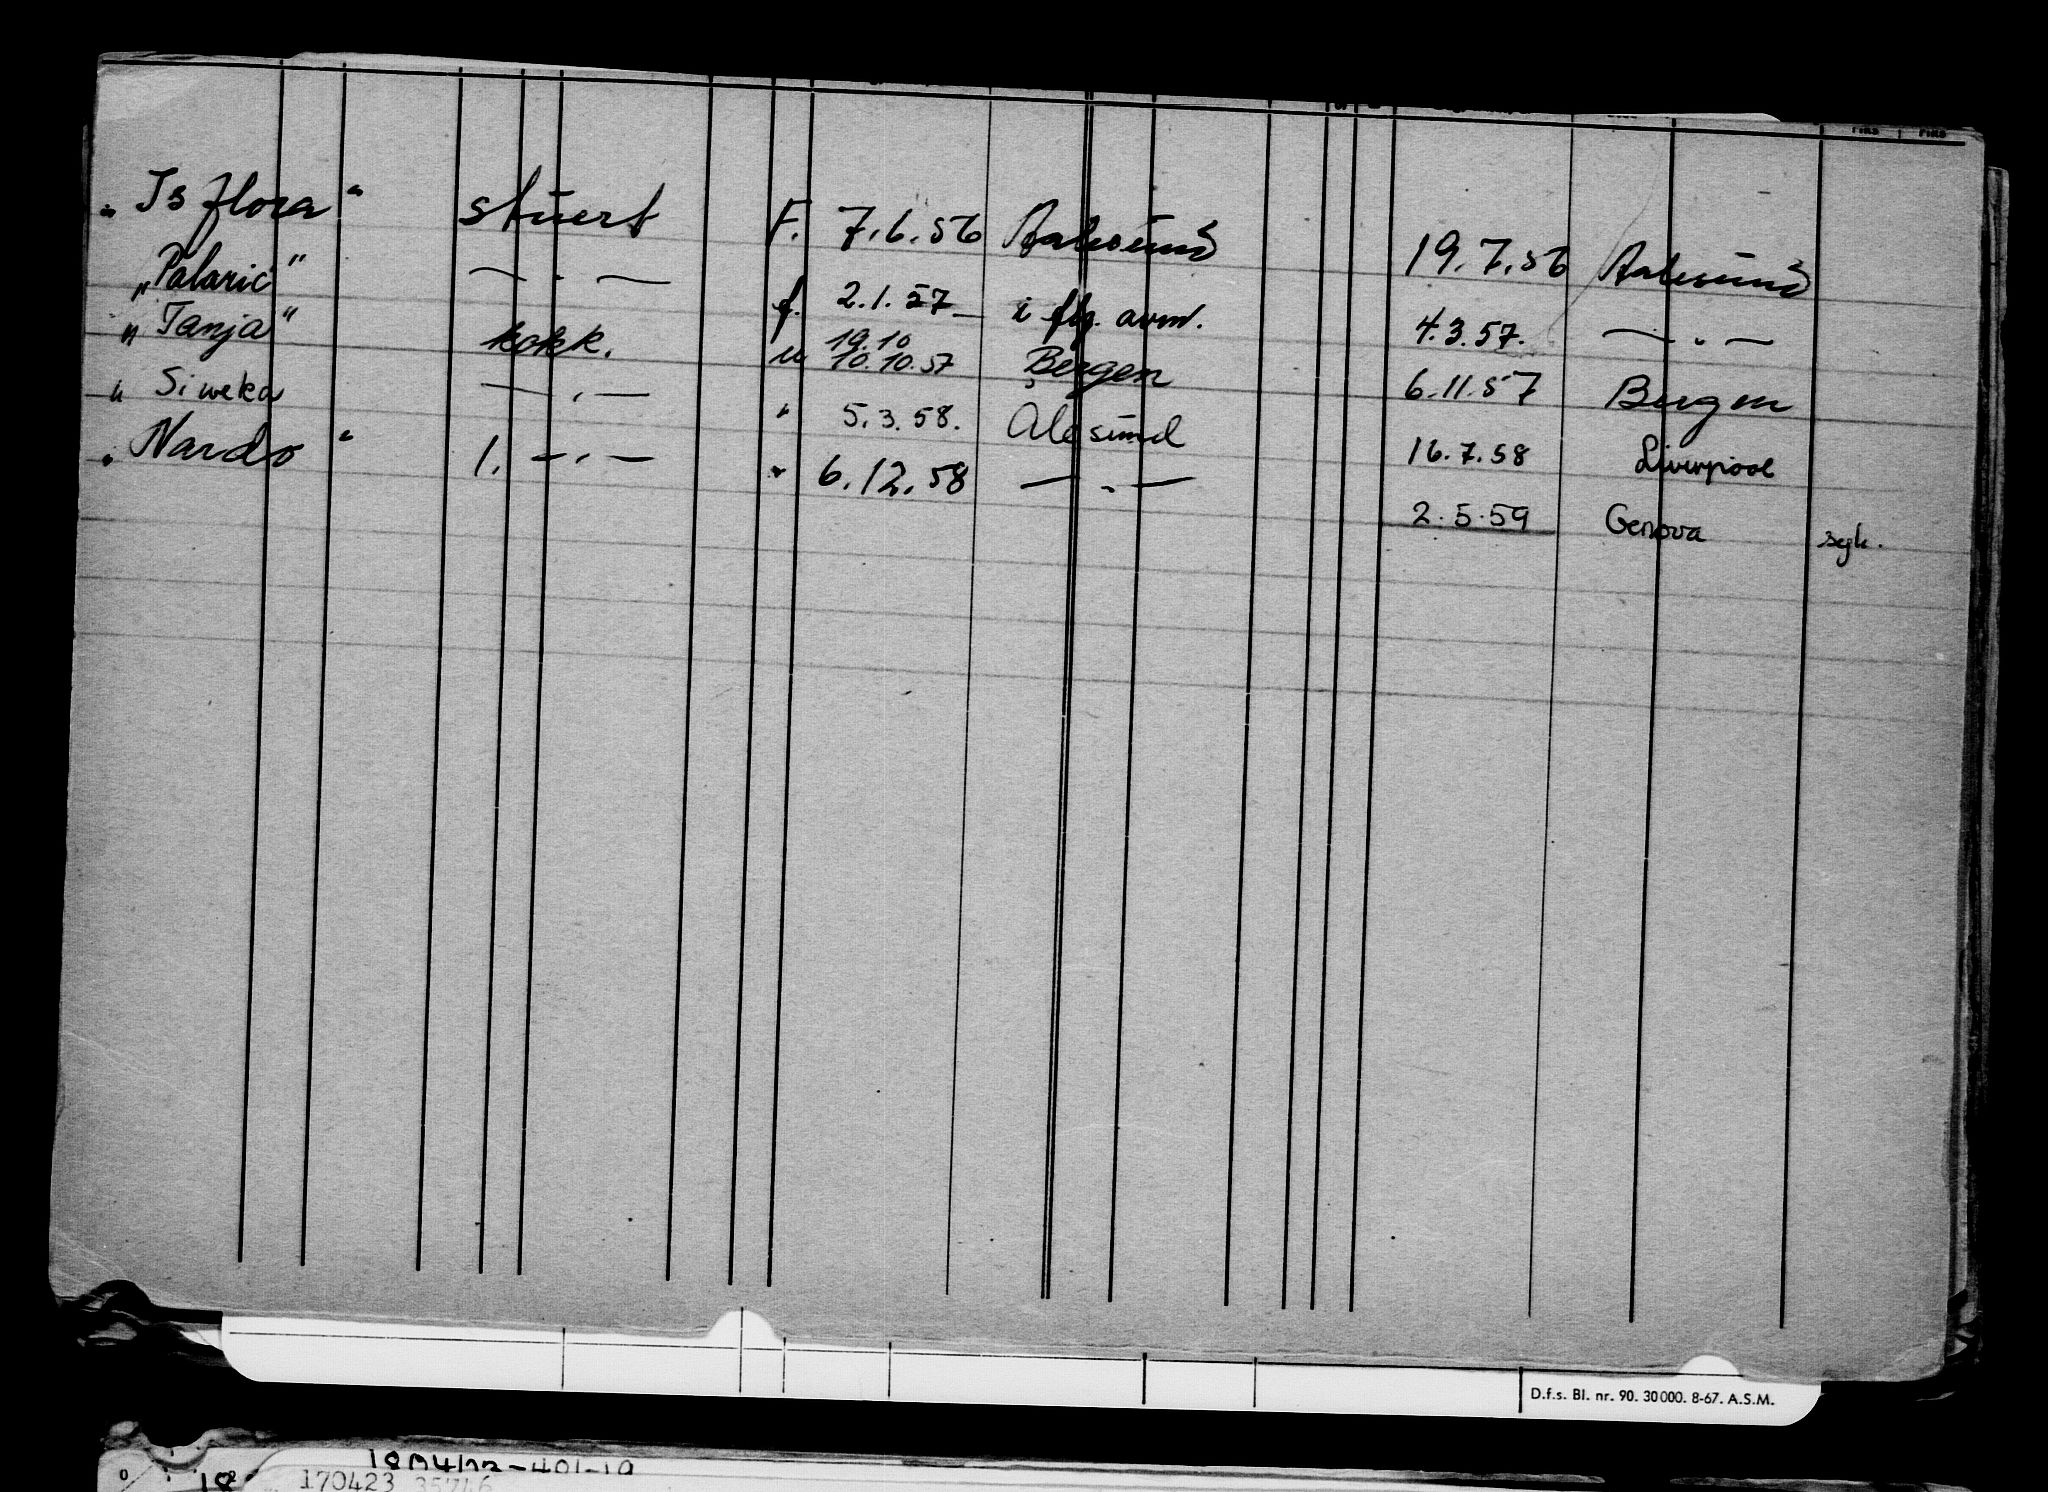 „ Is Flora “ stuert F. 7.6.56 Aalesund 19.7.56 Aalesund
„Polaric" — · — f. 2.1.57 — i flg. avm. 4.3.57. — · —
„ Tanja" kokk. u 19.10 10.10.57 Bergen 6.11.57 Bergen
" Siweka — · — " 5.3.58. Alesund 16.7.58 Liverpool
„ Nardo “ 1. — · — " 6.12.58 — · — 2.5.59 Genova syk.
D.f.s. Bl. nr. 90. 30000. 8-67. A.S.M.
170423 35746